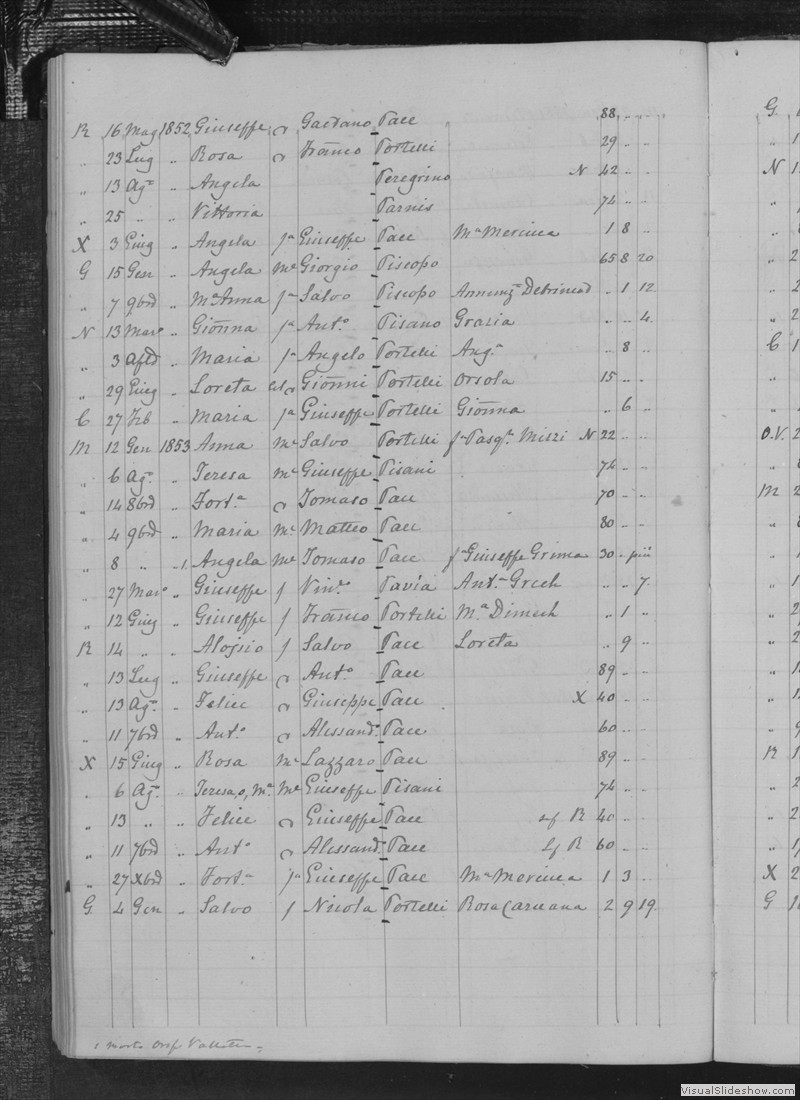 R 16 Mag 1852 Giuseppe Gaetano Pace 88 .. ..
G
.. 23 Lug .. Rosa Franco Portelli 29 .. ..
.. 13 Ago .. Angela Peregrino N 42 .. ..
N
.. 25 .. .. Vittoria Parnis 74 .. ..
X 3 Giug .. Angela fa Giuseppe Pace Ma Mercieca 1 8 ..
G 15 Gen .. Angela me Giorgio Piscopo 65 8 20
.. 7 9bre .. Ma Anna fa Salvo Piscopo Annunza .. 1 12
N 13 Marzo .. Gionna fa Anto Pisano Grazia .. .. 4
.. 3 .. Maria fa Angelo Portelli Anga .. 8 ..
C
.. 29 Giug .. Loreta Gionni Portelli Orsola 15 .. ..
C 27 Feb .. Maria fa Giuseppe Portelli Gionna .. 6 ..
M 12 Gen 1853 Anna me Salvo Portelli fa Pasqe Mizzi N 22 .. ..
O.V. 2
.. 6 Ago .. Teresa me Giuseppe Pisani 74 .. ..
.. 14 8bre .. Forta Tomaso Pace 70 .. ..
M
.. 4 9bre .. Maria me Matteo Pace 80 .. ..
.. 8 .. 1. Angela me Tomaso Pace fa Giuseppe Grima 30 ..
.. 27 Marzo .. Giuseppe f Vinco Pavia Anta Grech .. .. 7
.. 12 Giug .. Giuseppe f Franco Portelli Ma Dimech .. 1 ..
R 14 .. .. Aloisio f Salvo Pace Loreta .. 9 ..
.. 13 Lug .. Giuseppe Anto Pace 89 .. ..
.. 13 Ago .. Felice Giuseppe Pace X 40 .. ..
.. 11 7bre .. Anto Alessando Pace 60 .. ..
X 15 Giug .. Rosa me Lazzaro Pace 89 .. ..
R
.. 6 Ago .. Teresa, o, Ma me Giuseppe Pisani 74 .. ..
.. 13 .. .. Felice Giuseppe Pace R 40 .. ..
.. 11 7bre .. Anto Alessando Pace R 60 .. ..
.. 27 Xbre .. Forta fa Giuseppe Pace Ma Mercieca 1 3 ..
X 2
G 4 Gen .. Salvo f Nicola Portelli Rosa Caruana 2 9 19
G
1 morta Osp Valletta
VisualSlideshow.com